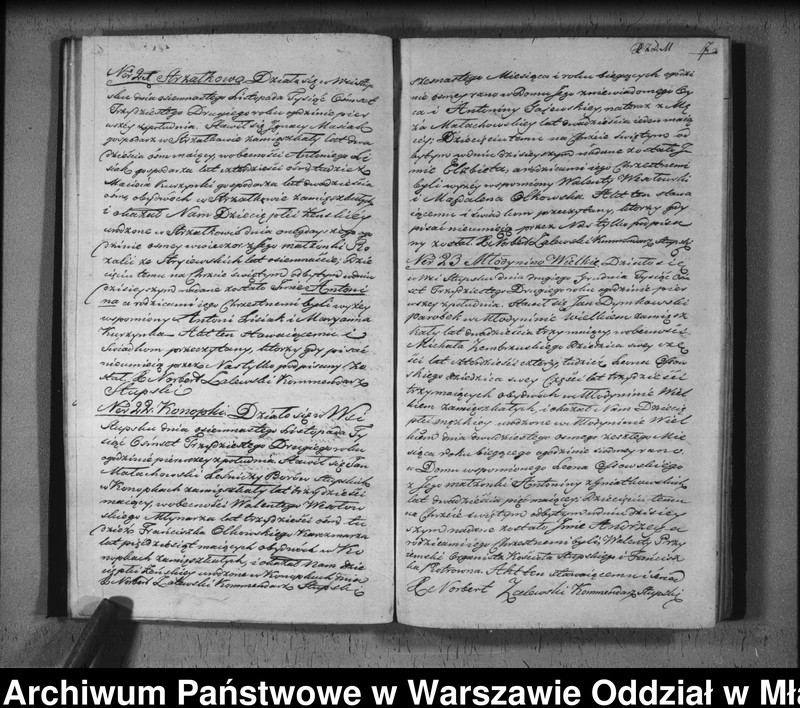 Nro 21. Strzałkowo Działo się w Wsi Słup
sku dnia osiemnastego Listopada Tysiąc Ośmset
Trzydziestego Drugiego roku o godzinie pier
wszey z południa. Stawił się Ignacy Masiak
gospodarz w Strzałkowie zamięszkały lat dwa
dzieścia ośm maiący, w obecności Antoniego Li
siak gospodarza lat czterdzieści ośm tudzież
Macieia Kurzynki gospodarza lat dwadzieścia
ośm obydwóch w Strzałkowie zamięszkałych
i okazał Nam Dziecię płci żeńskiey
urodzone w Strzałkowie dnia onegdayszego o go
dzinie osmey wieczor z Jego małżonki Ro
zalii lat osiemnaście; Dzie
cięciu temu na Chrzcie świętym odbytym w dniu
dzisieyszym nadane zostało Imie Antoni
na a rodzicami iego Chrzestnemi byli wyżey
wspomiony Antoni Lisiak i Maryanna
Kurzynka. Akt ten stawaiącemu i
Świadkom przeczytany, którzy gdy pisać
nieumieią przez Nas tylko podpisany zo
stał. X Norbert Zalewski Kommendarz
Słupski
Nro 22. Konopki Działo się w Wsi
Słupsku dnia osiemnastego Listopada Ty
siąc Ośmset Trzydziestego Drugiego roku
o godzinie pierwszey z południa Stawił się Jan
Małachowski Leśniczy Borów Słupskich
w Konopkach zamięszkały lat trzydzieści
maiący, w obecności Walentego Wiatow
skiego Młynarza lat trzydzieści ośm tu
dzież Franciszka Olkowskiego Karczmarza
lat pięćdziesiąt maiących obydwóch w Ko
nopkach zamięszkałych, i okazał Nam dzie
cię płci żeńskiey urodzone w Konopkach dnia
X Norbert Zalewski Kommendarz Słupski
szesnastego Miesiąca i roku bieżących o godzi
nie osmey rano w Domu Jego z niewiadomego Oy
ca i Antoniny Gajewskiey, na teraz z Mę
ża Małachowskiey lat dwadzieścia ieden maią
cey; Dziecięciu temu na Chrzcie świętym od
bytym w dniu dzisieyszym nadane zostało I
mie Elżbieta, a rodzicami iego Chrzestnemi
byli wyżey wspomiony Walenty Wiatowski
i Magdalena Olkowska. Akt ten stawa
iącemu i świadkom przeczytany, którzy gdy
pisać nieumieią przez Nas tylko podpisa
ny został. X Norbert Zalewski Kommendarz Słupski
Nro 23. Młodynino Wielkie Działo się
w Wsi Słupsku dnia drugiego Grudnia Tysiąc Ośm
set Trzydziestego Drugiego roku o godzinie pier
wszey z południa. Stawił się Jan Dymkowski
parobek w Młodyninie Wielkiem zamięsz
kały lat dwadzieścia trzy maiący w obecności
Michała Zembrzuskiego Dziedzica swey czę
ści lat czterdzieści cztery, tudzież Leona
skiego Dziedzica swey Części lat trzydzieści
trzy maiących obydwóch w Młodyninie Wiel
kiem zamięszkałych, i okazał Nam Dziecię
płci męzkiey urodzone w Młodyninie Wiel
kiem dnia dwudziestego osmego zeszłego Mie
siąca roku bieżącego o godzinie siodmey rano
w Domu wspomionego Leona
z Jego małżonki Antoniny z Gniatkowskich
lat dwadzieścia pięć maiącey; Dziecięciu temu
na Chrzcie świętym odbytym w dniu dzisiey
szym nadane zostało Imie Andrzey a
rodzicami iego Chrzestnemi byli, Walenty Przy
Organista Kościoła Słupskiego i Francisz
ka Piotrowna. Akt ten stawaiącemu i świad
X Norbert Zalewski Kommendarz Słupski
Archiwum Państwowe w Warszawie Oddział w Mła